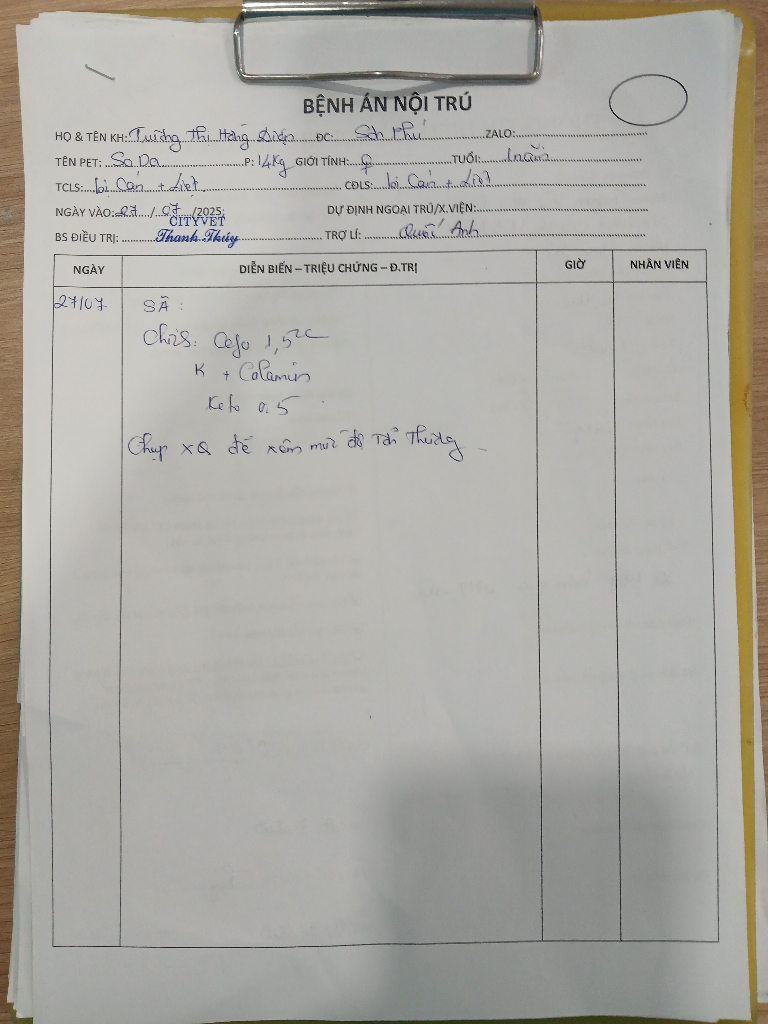 BỆNH ÁN NỘI TRÚ
HỌ & TÊN KH: Trương Thị Hồng Diệp ĐC: Sơn Phú ZALO:
TÊN PET: Sa Da P: 14Kg GIỚI TÍNH: ♀ TUỔI: 1 năm
TCLS: bị Cắn + Liệt CĐLS: bị Cắn + Liệt
NGÀY VÀO: 27 / 07 /2025; DỰ ĐỊNH NGOẠI TRÚ/X.VIỆN:
CITYVET
BS ĐIỀU TRỊ: Thanh Thúy TRỢ LÍ: Quốc Anh
NGÀY DIỄN BIẾN – TRIỆU CHỨNG – Đ.TRỊ GIỜ NHÂN VIÊN
27/07 SÂ :
Cefo 1,5cc
K + Calamin
Keto 0.5
Chụp XQ để xem mức độ Tổn Thương